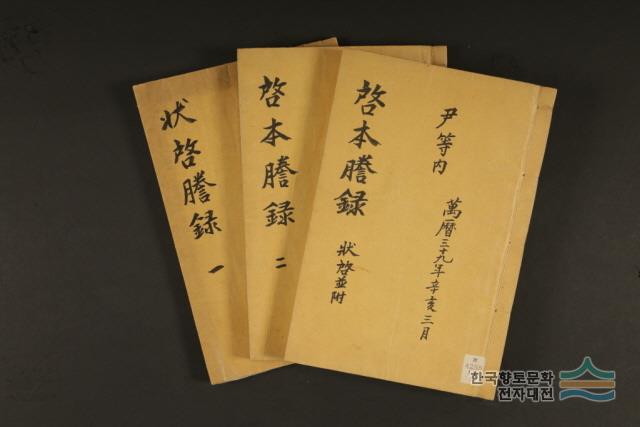 狀啓謄録
一
啓本謄録
二
啓本謄録
狀啓並附
尹等内
萬曆三十九年辛亥三月
한국향토문화
전자대전